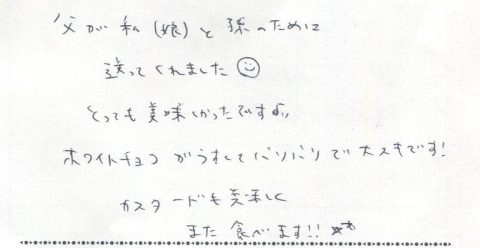 父が私(娘)と孫のために
送ってくれました☺
とっても美味しかったです♪
ホワイトチョコがうすくてパリパリで大スキです!
カスタードも美味しく
また食べます!!